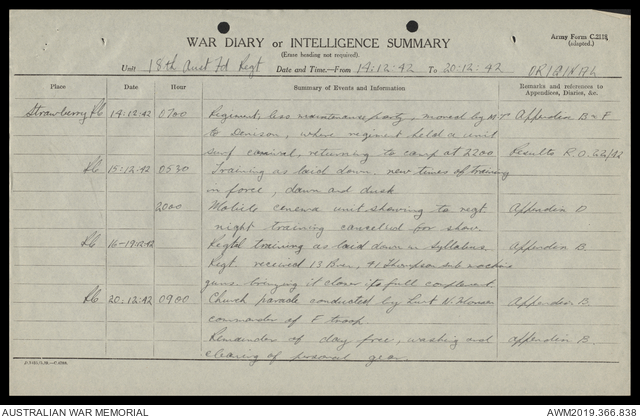 WAR DIARY or INTELLIGENCE SUMMARY
(Erase heading not required).
Army Form C.2118
(adapted.)
Unit 18th Aust Fd Regt Date and Time—From 14:12:42 To 20:12:42
Place Date Hour Summary of Events and Information Remarks and references to Appendices, Diaries, &c.
Strawberry Rd 14:12:42 0700 Regiment, less maintenance party, moved by M.T. Appendix B & F
to Denison, where regiment held a unit
surf carnival, returning to camp at 2200. Results R.O.
Rd 15:12:42 0530 Training as laid down. new times of training
in force, dawn and dusk
2000 Mobile cinema unit showing to regt Appendix D
night training cancelled for show.
Rd 16-19:12:42 Regtl training as laid down in Syllabus Appendix B.
Regt received 13 Bren, 41 Thompson sub machine
guns bringing it closer to full complement.
Rd 20:12:42 0900 Church parade conducted by Lieut N. Appendix B.
commander of F troop
Remainder of day free, washing and Appendix B.
cleaning of personal gear.
AUSTRALIAN WAR MEMORIAL
AWM2019.366.838